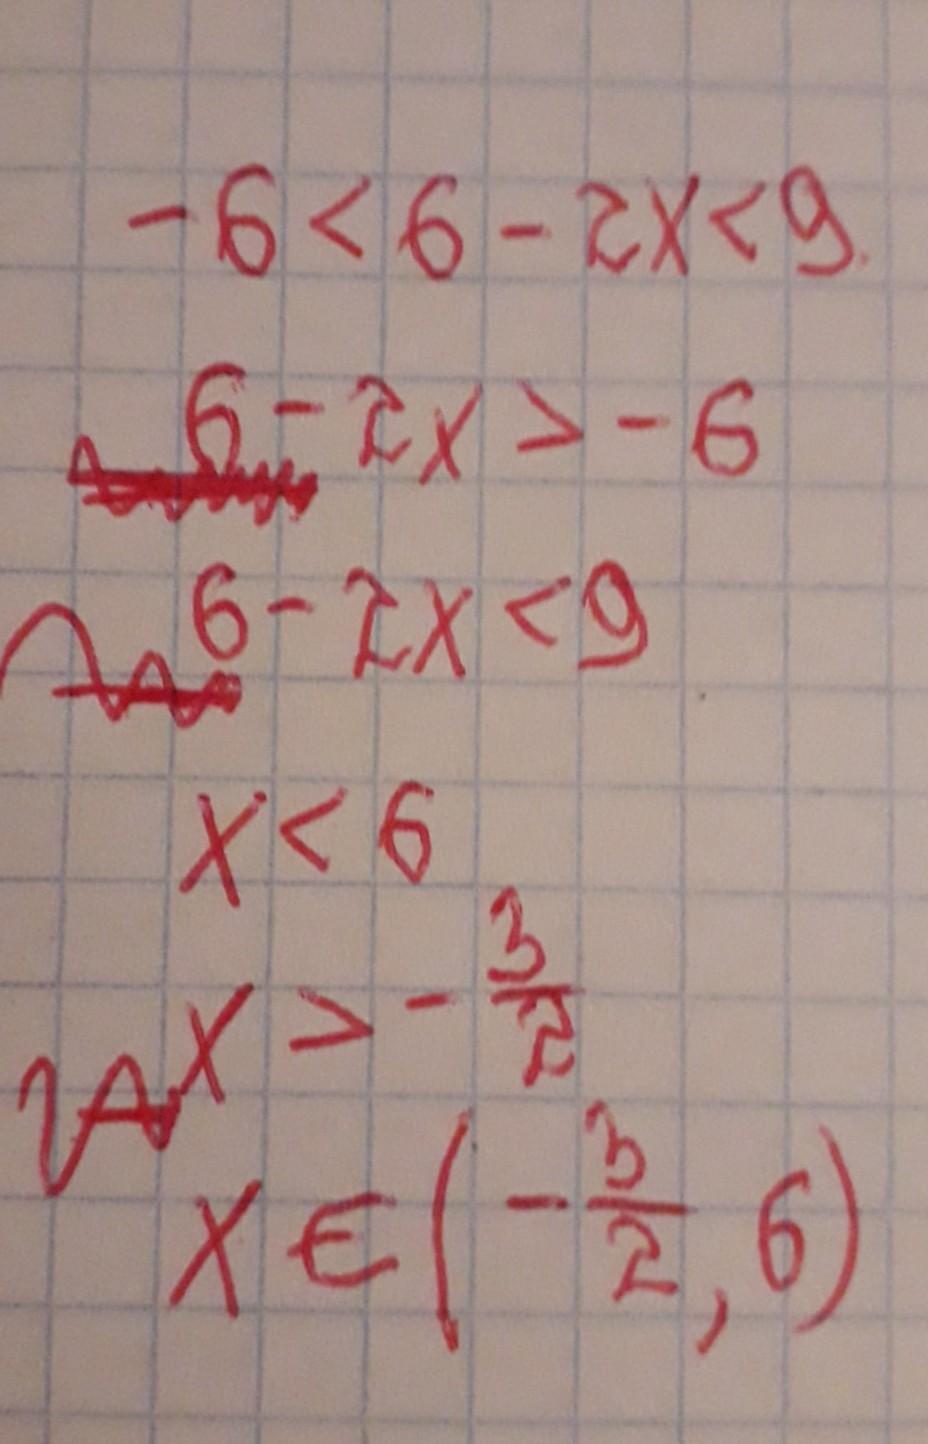 -6 < 6 - 2x < 9.
6 - 2x > -6
6 - 2x < 9
x < 6
x > - 3/2
x ∈ (- 3/2, 6)